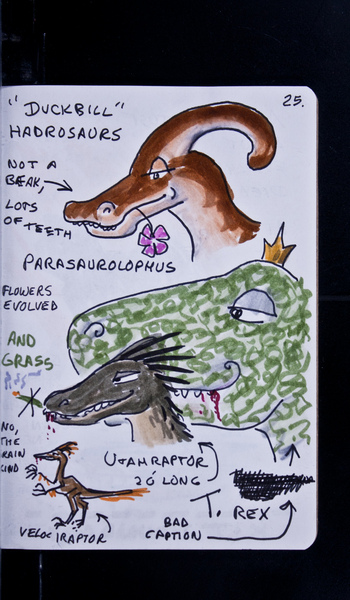 25.
"DUCKBILL"
HADROSAURS
NOT A
BEAK,
LOTS
OF TEETH
PARASAUROLOPHUS
FLOWERS
EVOLVED
AND
GRASS
NO,
THE
RAIN
KIND
UTAHRAPTOR
20' LONG
T. REX
BAD
CAPTION
VELOCIRAPTOR